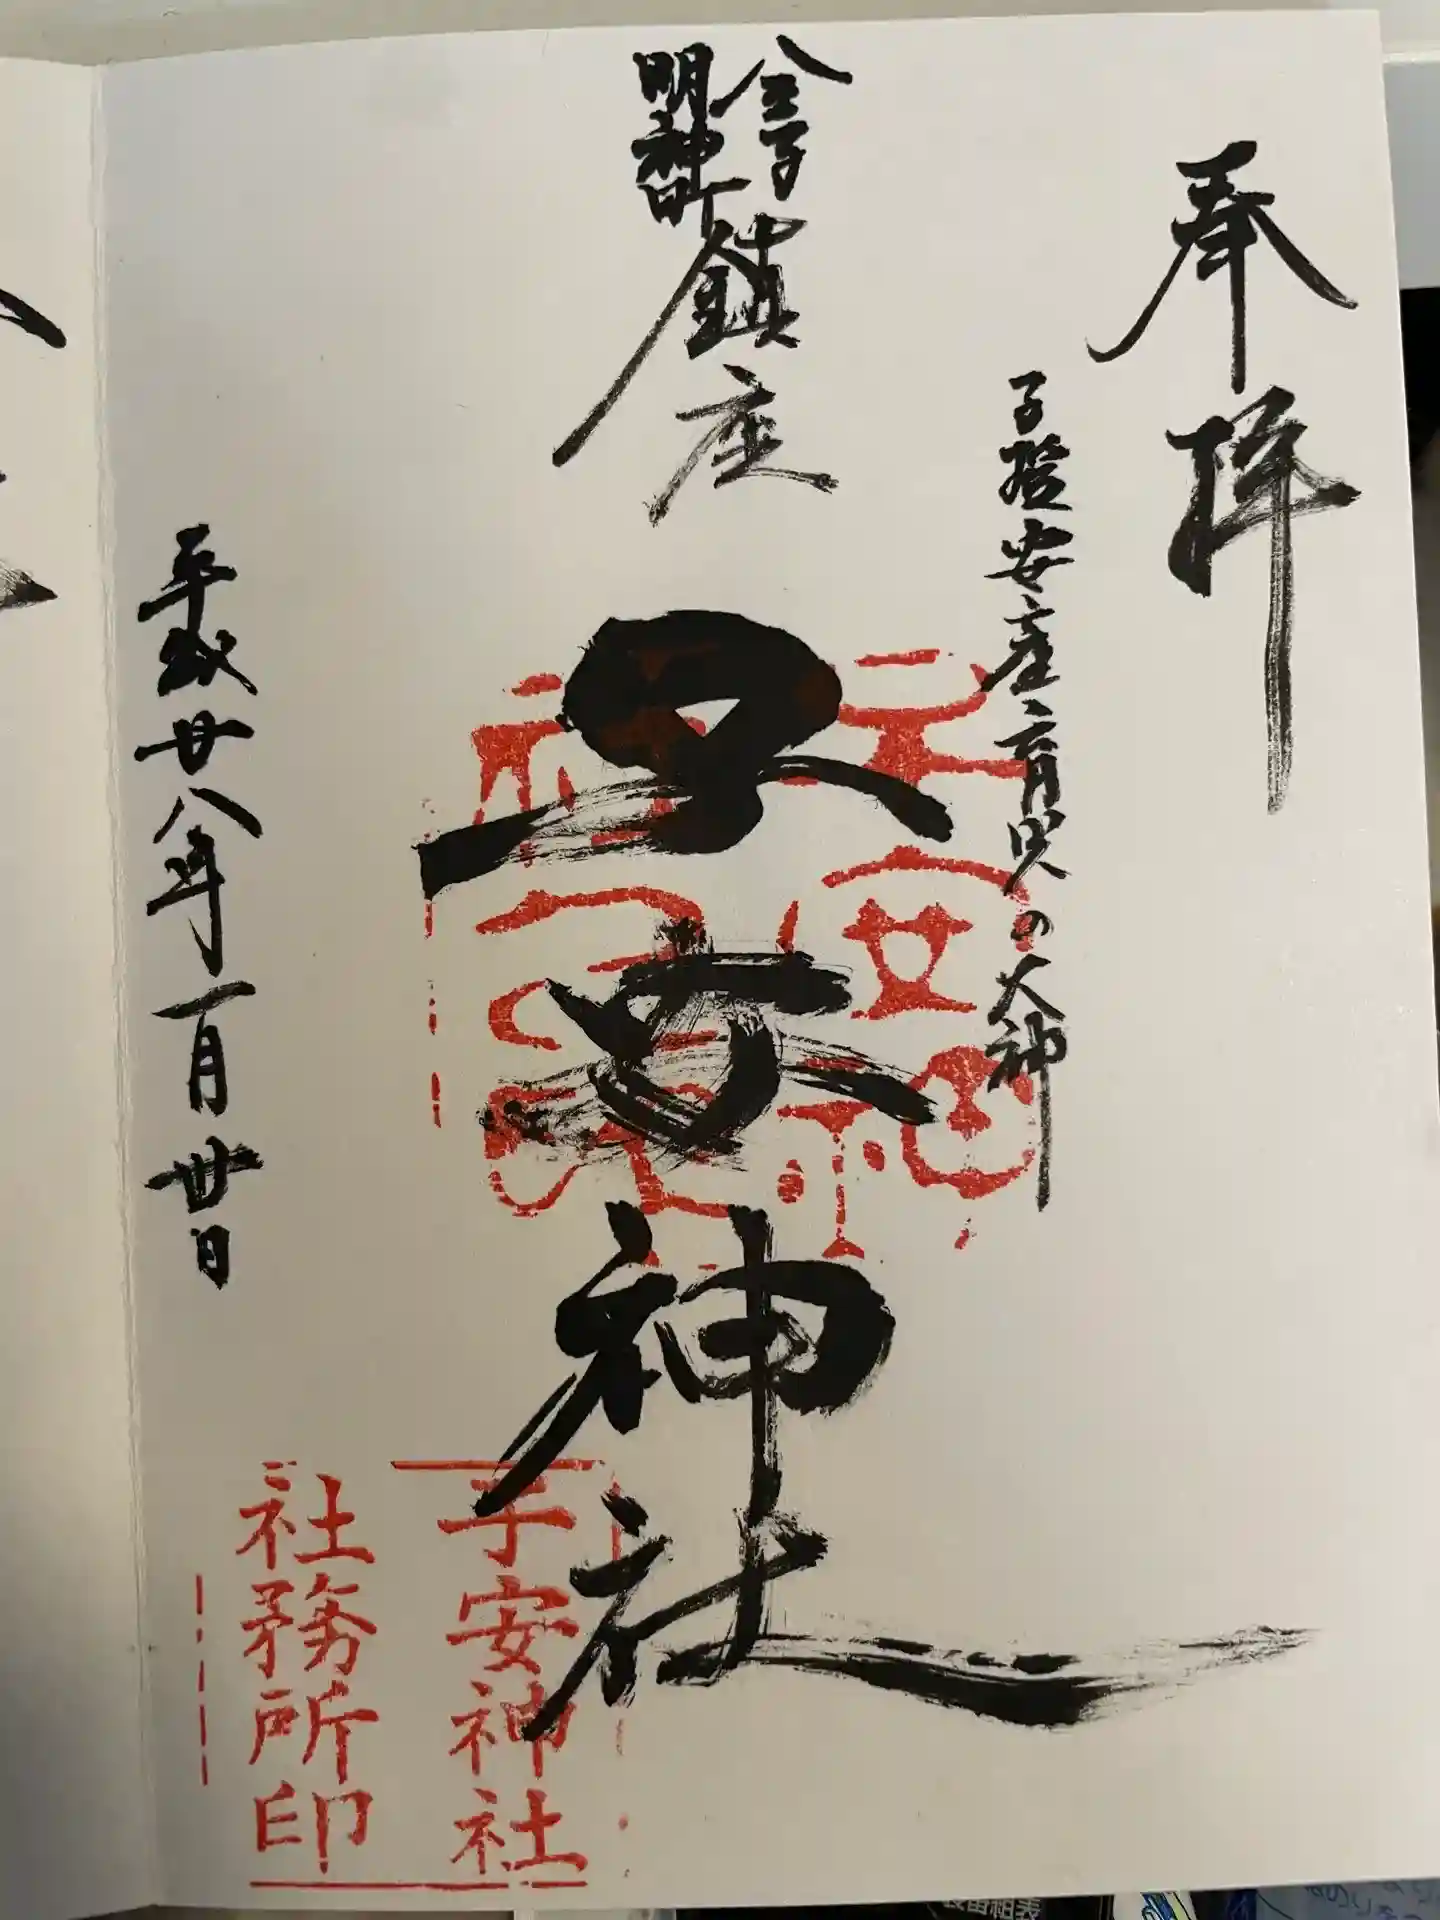 奉拝
子授安産育児の大神
八王子
明神町
鎮座
子安神社
平成廿八年一月丗日
子安神社
社務所印